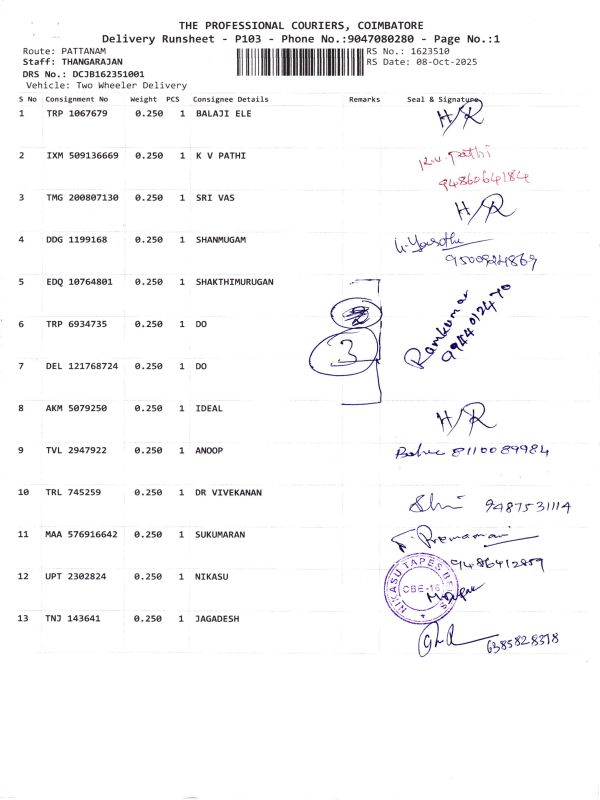 THE PROFESSIONAL COURIERS, COIMBATORE
Delivery Runsheet - P103 - Phone No.:9047080280 - Page No.:1
Route: PATTANAM RS No.: 1623510
Staff: THANGARAJAN RS Date: 08-Oct-2025
DRS No.: DCJB162351001
Vehicle: Two Wheeler Delivery
S No Consignment No Weight PCS Consignee Details Remarks Seal & Signature
1 TRP 1067679 0.250 1 BALAJI ELE H/R
2 IXM 509136669 0.250 1 K V PATHI K.V. Pathi
9486064184
3 TMG 200807130 0.250 1 SRI VAS H/R
4 DDG 1199168 0.250 1 SHANMUGAM
9500924869
5 EDQ 10764801 0.250 1 SHAKTHIMURUGAN
6 TRP 6934735 0.250 1 DO Ramkumar
3 9944012470
7 DEL 121768724 0.250 1 DO
8 AKM 5079250 0.250 1 IDEAL H/R
9 TVL 2947922 0.250 1 ANOOP 8110089984
10 TRL 745259 0.250 1 DR VIVEKANAN
9487531114
11 MAA 576916642 0.250 1 SUKUMARAN
9486412859
12 UPT 2302824 0.250 1 NIKASU NIKASU TAPES CBE-16
13 TNJ 143641 0.250 1 JAGADESH
6385828378